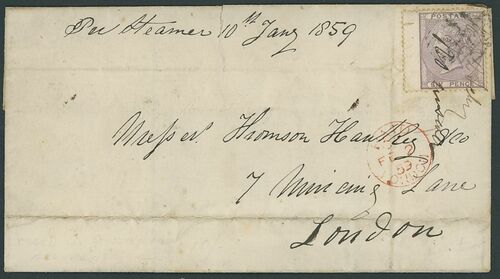 Per Steamer 10th Jany 1859
POSTAGE
SIX PENCE
Messrs. Thomson Hankey & Co
7 Mincing Lane
London
PAID
FE 2
59